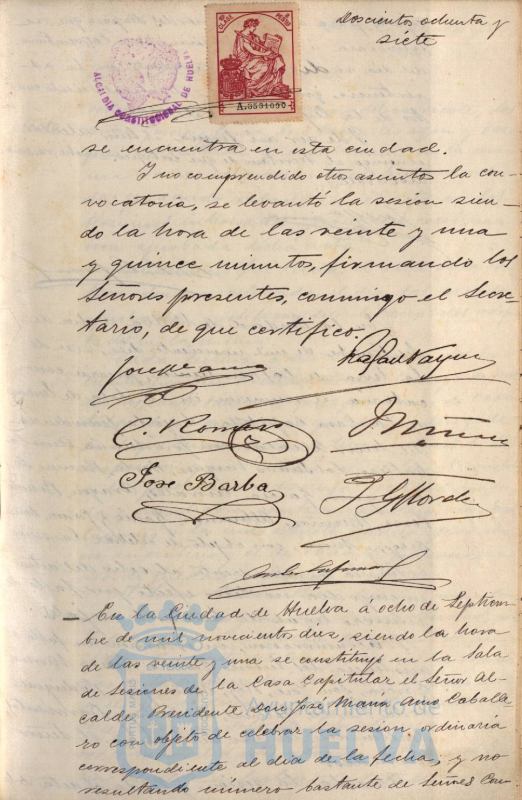 Doscientos ochenta y
siete
ALCALDIA CONSTITUCIONAL DE HUELVA
A.0591090
se encuentra en esta ciudad.
Y no comprendido otros asuntos la con-
vocatoria, se levantó la sesión sien-
do la hora de las veinte y una
y quince minutos, firmando los
Señores presentes, conmigo el Secre-
tario, de que certifico.
C. Romero
José Barba
— En la Ciudad de Huelva á ocho de Septiem-
bre de mil novecientos diez, siendo la hora
de las veinte y una se constituyó en la Sala
de Sesiones de la Casa Capitular el Señor Al-
calde Presidente Don José María Amo Caballe-
ro con objeto de celebrar la sesión ordinaria
correspondiente al dia de la fecha, y no
resultando número bastante de Señores Con
Ayuntamiento de
HUELVA